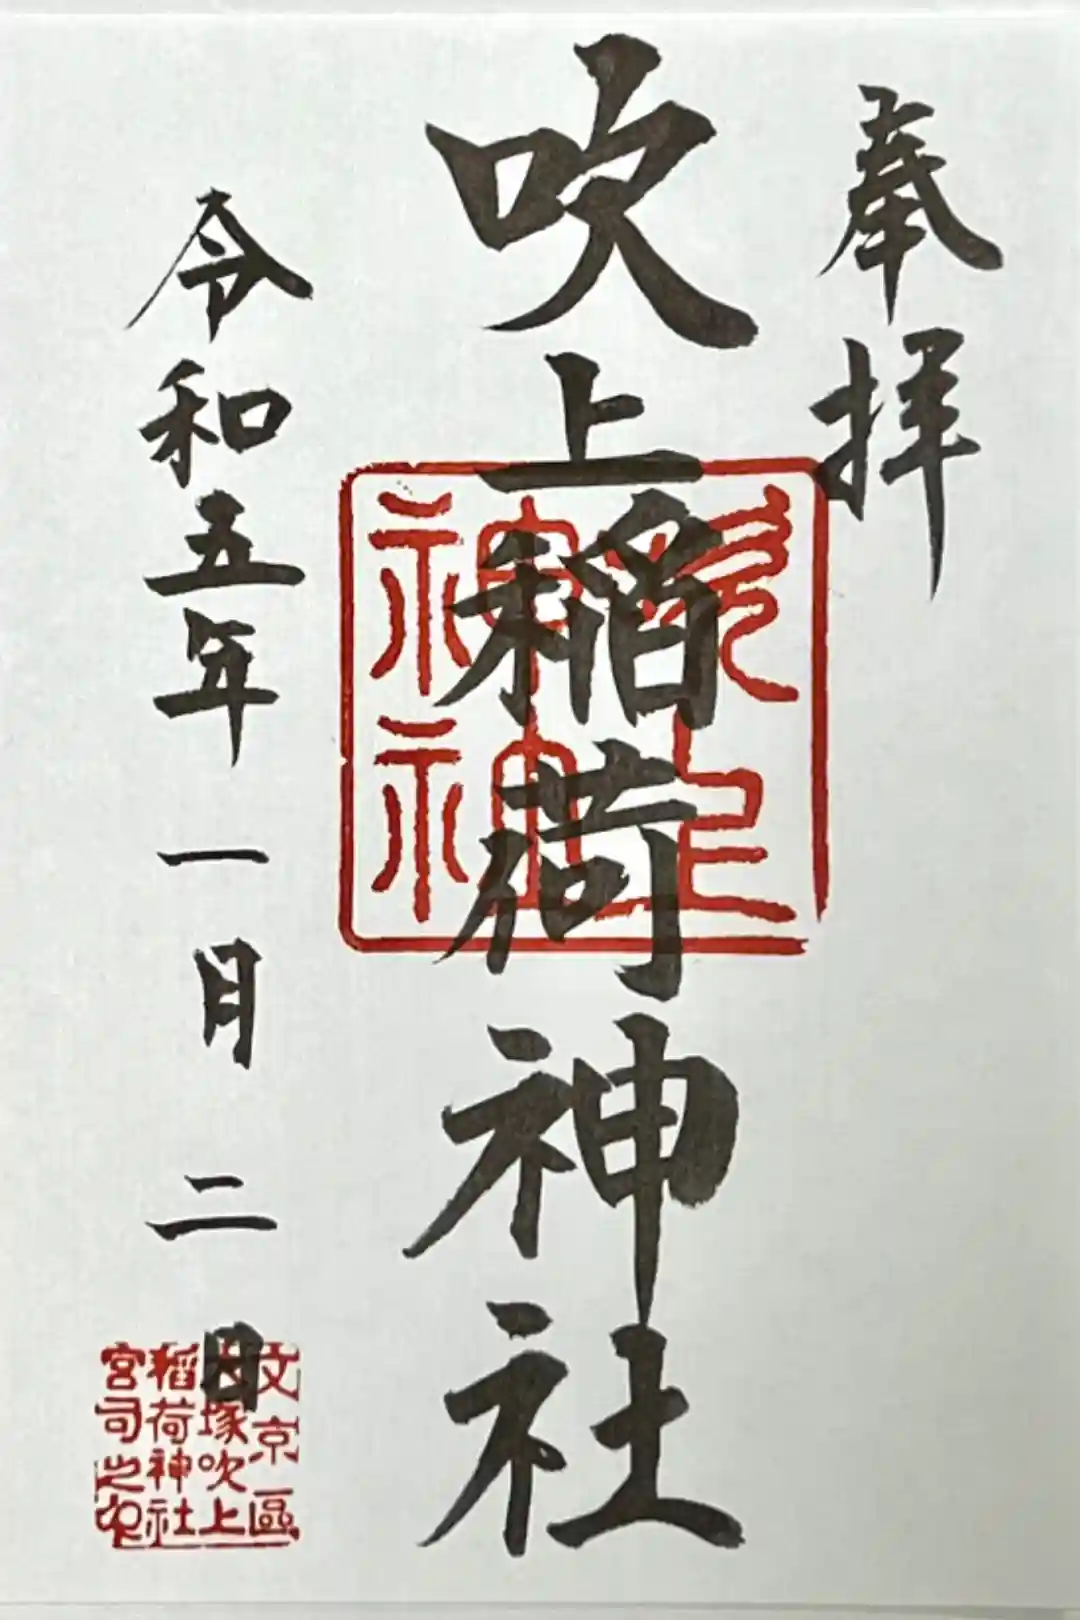 奉拝
吹上稲荷神社
吹上
神神
令和五年一月二日
文京區
大塚吹上
稲荷神社
宮司之印